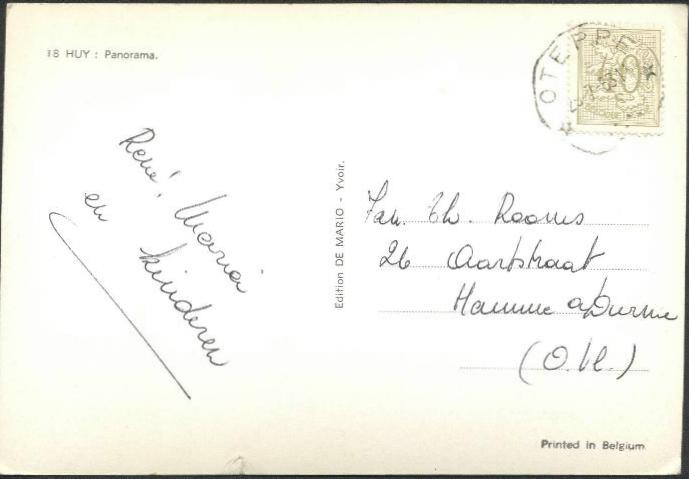 18 HUY : Panorama.
OTEPPE
40
BELGIQUE
René, Maria
en
kinderen
Edition DE MARIO - Yvoir.
Fam. Th. Rooms
26 Aartstraat
Hamme a/Durme
(O.Vl.)
Printed in Belgium